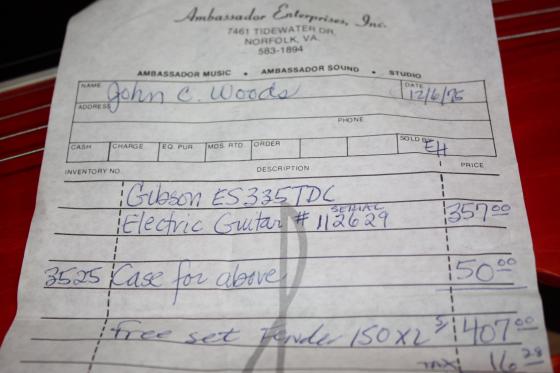 Ambassador Enterprises, Inc.
7461 TIDEWATER DR.
NORFOLK, VA.
583-1894
AMBASSADOR MUSIC • AMBASSADOR SOUND • STUDIO
NAME John C. Woods DATE 12/6/75
ADDRESS
PHONE
CASH CHARGE EQ. PUR. MDS. RTD. ORDER SOLD BY EH
INVENTORY NO. DESCRIPTION PRICE
Gibson ES335TDC
SERIAL
Electric Guitar # 112629 357.00
3525 Case for above 50.00
Free set Fender 150X2 407.00
TAX 16.28